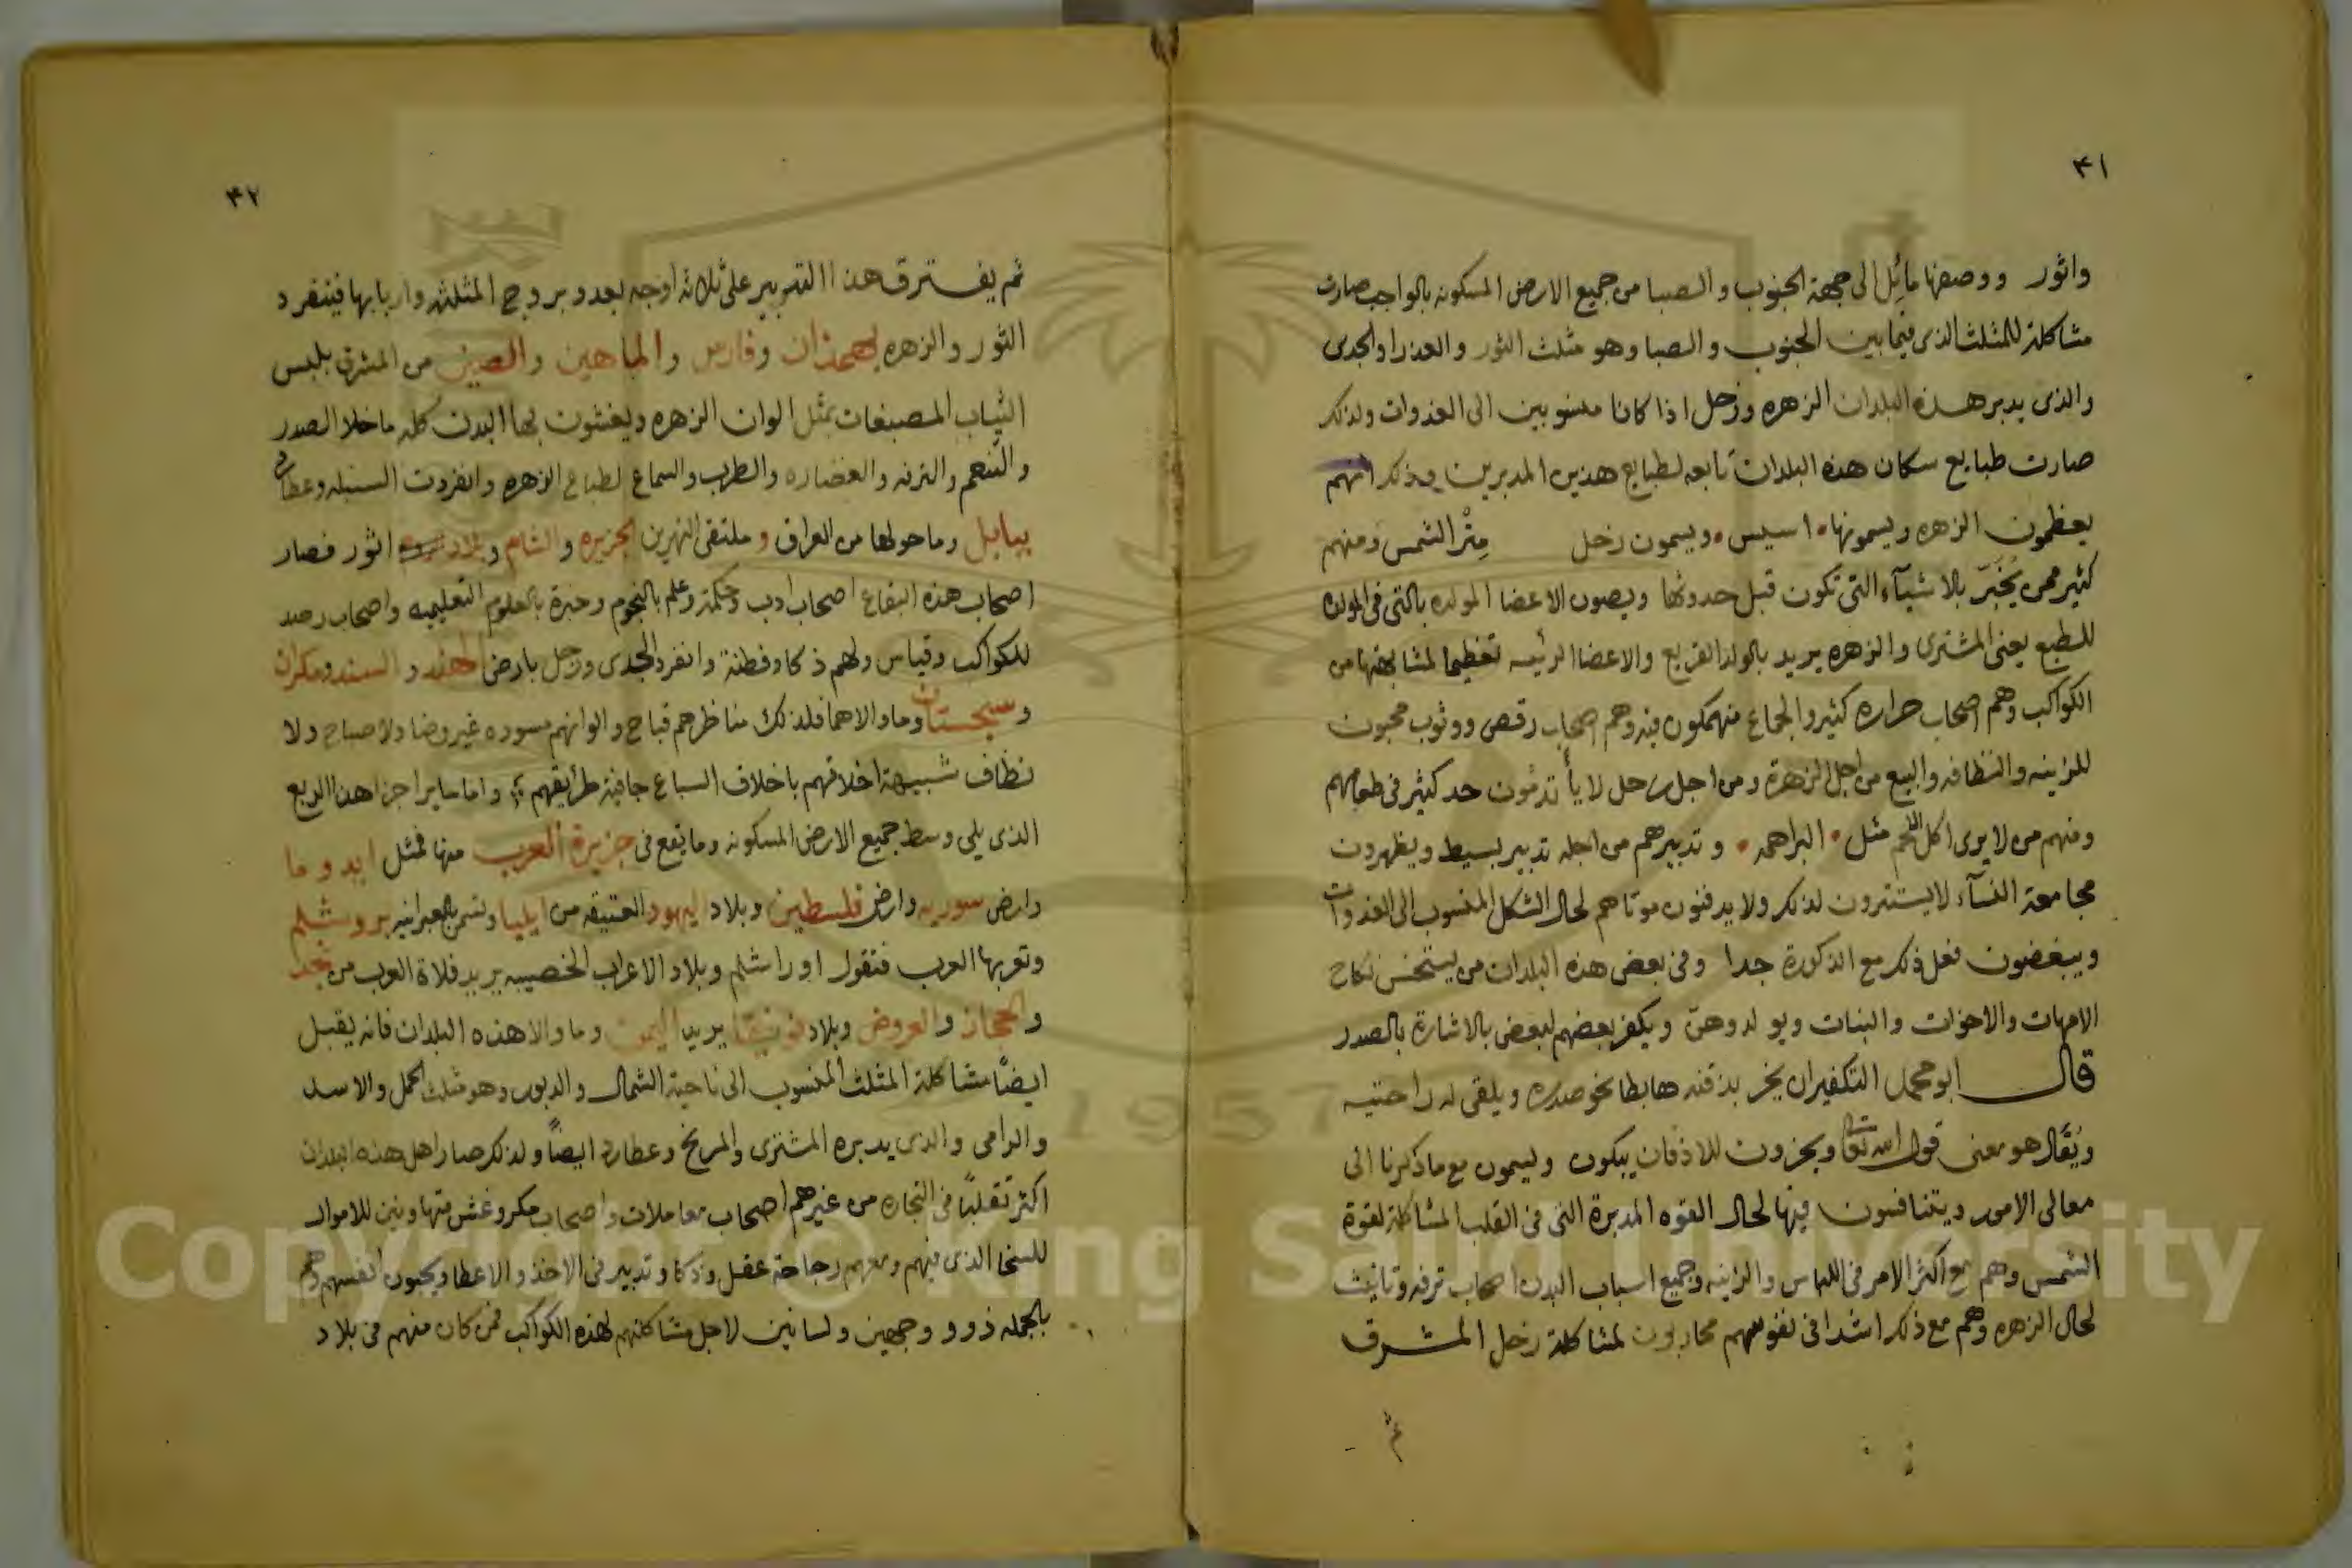 ٣١
واثور ووصفها مائل الى جهة الجنوب والصبا من جميع الارض المسكونه بالواجب صارت
مشاكلة للمثلث الذى فيما بين الجنوب والصبا وهو مثلث الثور والعذرا والجدى
والذى يدبر هذه البلدان الزهره وزحل اذا كانا منسوبين الى الغدوات ولذلك
صارت طبايع سكان هذه البلدان تابعه لطبايع هذين المدبرين وذلك انهم
يعظمون الزهره ويسمونها اسيس ويسمون زحل مِثْر الشمس ومنهم
كثير ممن يُخَبّر بالاشيآء التى تكون قبل حدوثها ويصون الاعضا المولده بالتى فى المولده
للطبع يعنى المشترى والزهره يريد بالولد القريع والاعضا الرئيسه تعظيما لمشابهتها من
الكواكب وهم اصحاب حراره كثيروا الجماع منهمكون فيه وهم اصحاب رقص ووثوب محبون
للزينه والنظافه والبيع من اجل الزهرة ومن اجل زحل لا يأتدمون حد كثير فى طعامهم
ومنهم من لا يرى اكل اللحم مثل البراهمه وتدبيرهم من اجله تدبير بسيط ويظهرون
مجامعة النسآء لا يستترون لذلك ولا يدفنون موتاهم لحال الشكل المنسوب الى الغدوات
ويبغضون فعل ذلك مع الذكورة جدا وفى بعض هذه البلدان من يستحسن نكاح
الامهات والاخوات والبنات ويولدوهن ويكفر بعضهم لبعض بالاشارة بالصدر
قال ابو محمد التكفير ان يخر بذقنه هابطا نحو صدره ويلقى له راحتيه
ويُقَال هو معنى قول الله تعا ويخرون للاذقان يبكون ويسمون مع ما ذكرنا الى
معالى الامور ويتنافسون فيها لحال القوه المدبرة التى فى القلب المشاكلة لقوة
الشمس وهم مع اكثر الامر فى اللباس والزينه وجميع اسباب البدن اصحاب ترفه وتانيث
لحال الزهره وهم مع ذلك اشدا فى نفوسهم محاربون لمشاكلة زحل المشرق
ثم
٣٢
ثم يفترق هذا التدبير على ثلاثه اوجه بعدد بروج المثلثه واربابها فينفرد
الثور والزهره بهمذان وفارس والماهين والصين من المشرق بلبس
الثياب المصبغات بمثل الوان الزهره ويغشون بها البدن كله ما خلا الصدر
والتنعم والترفه والغضاره والطرب والسماع لطباع الزهره وانفردت السنبله وعطارد
ببابل وما حولها من العراق وملتقى النهرين الجزيره والشام وبلاد اثور فصار
اصحاب هذه البقاع اصحاب ادب وحكمة وعلم بالنجوم وخبرة بالعلوم التعليميه واصحاب رصد
للكواكب وقياس ولهم ذكا وفطنة وانفرد الجدى وزحل بارض الهند والسند ومكران
وسجستان وما والاهما فلذلك مناظرهم قباح والوانهم مسوده غير وضا ولا صباح ولا
نظاف شبيهة اخلاقهم باخلاق السباع جافية طرايقهم واما ساير اجزا هذا الربع
الذى يلى وسط جميع الارض المسكونه وما يقع فى جزيرة العرب منها فمثل ايدوما
وارض سوريه وارض فلسطين وبلاد اليهود العتيقه من ايليا وتسمى بالعبرانيه يروشلم
وتعربها العرب فتقول اوراشلم وبلاد الاعراب الخصيبه يريد فلاة العرب من نجد
والحجاز والعروض وبلاد فونيقا يريد اليمن وما والا هذه البلدان فانه يقبل
ايضًا مشاكلة المثلث المنسوب الى ناحية الشمال والدبور وهو مثلث الحمل والاسد
والرامى والذى يدبره المشترى والمريخ وعطارد ايضًا ولذلك صار اهل هذه البلدان
اكثر تقلبًا فى التجاره من غيرهم اصحاب معاملات واصحاب مكر وغش متهاونين للاموال
للسخا الذى فيهم ومعهم رجاحة عقل وذكا وتدبير فى الاخذ والاعطا ويحبون انفسهم وهم
بالجمله ذوو وجهين ولسانين لاجل مشاكلتهم لهذه الكواكب فمن كان منهم فى بلاد
1957
Copyright © King Saud University